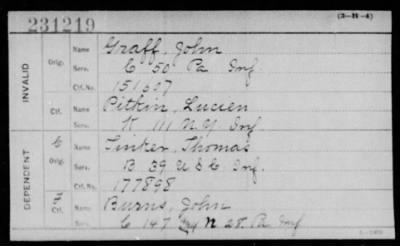 231219
(3-H-4)
INVALID
Orig.
Name Graff, John
Serv. C 50 Pa Inf.
Ctf. No. 151607
Ctf.
Name Pitkin, Lucien
Serv. K 111 N.Y. Inf.
DEPENDENT
Orig.
Name Tinker, Thomas
Serv. B 39 U S C Inf.
Ctf. No. 177898
Ctf.
Name Burns, John
Serv. C 147 N 28. Pa Inf